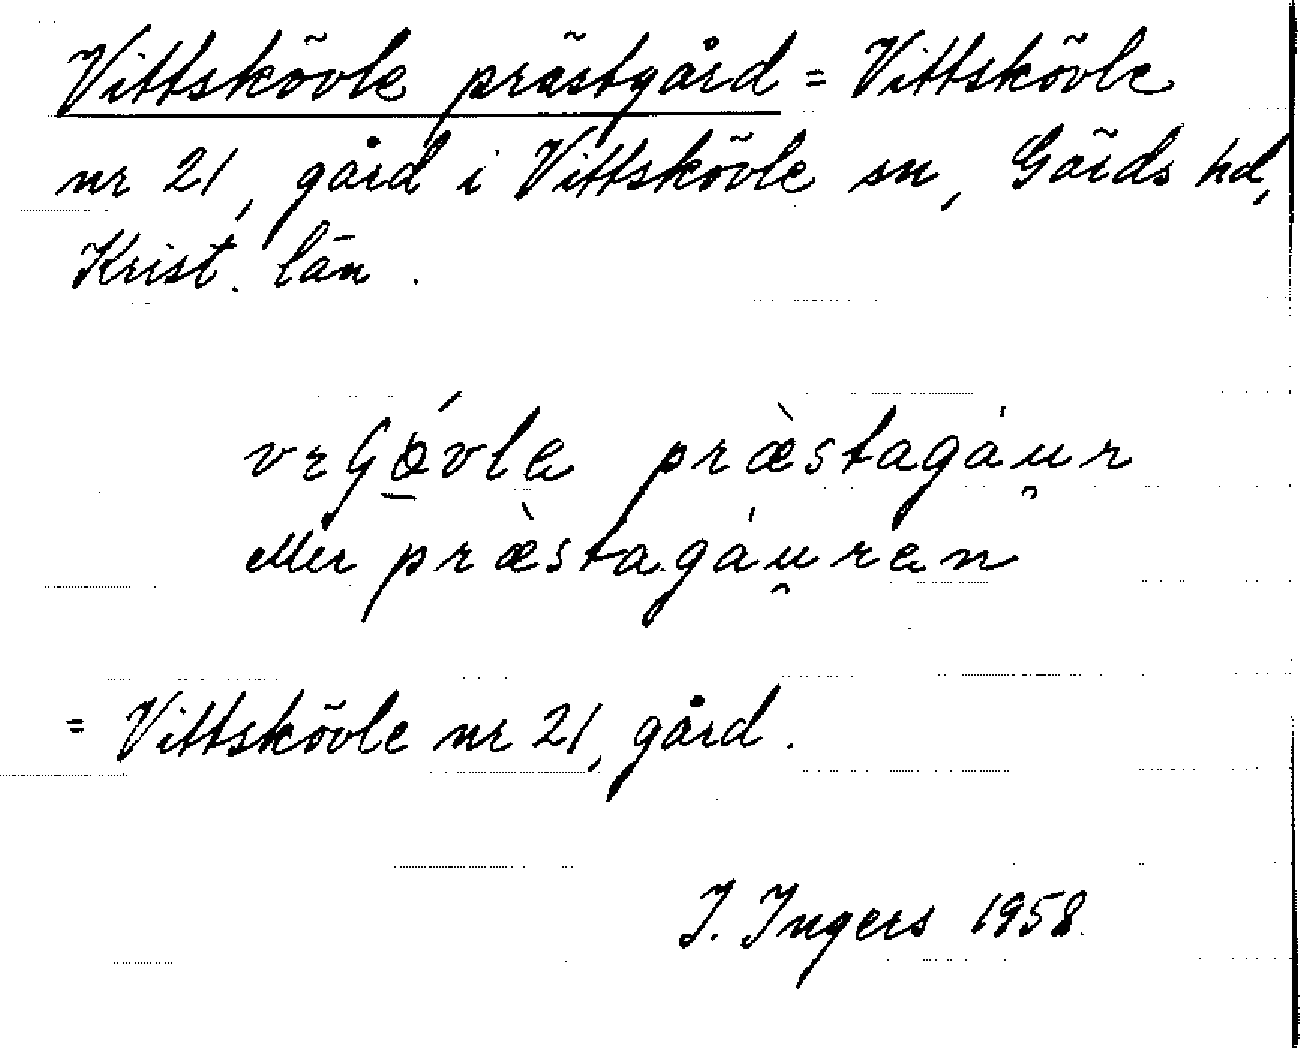 Vittskövle prästgård = Vittskövle
nr 21, gård i Vittskövle sn, Gärds hd,
Krist. län.
præstagáu̯r
eller præ̀stagáu̯ren
= Vittskövle nr 21, gård.
I. Ingers 1958.